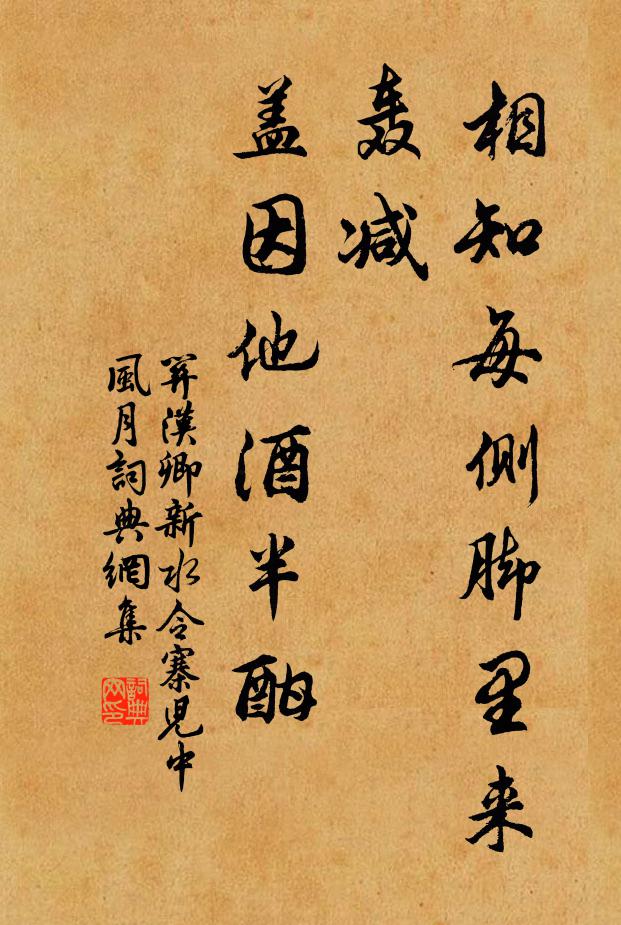 相知每侧脚里来
轰减
盖因他酒半酣
関漢卿新水令寨児中
風月詞典網集
詞典
网印